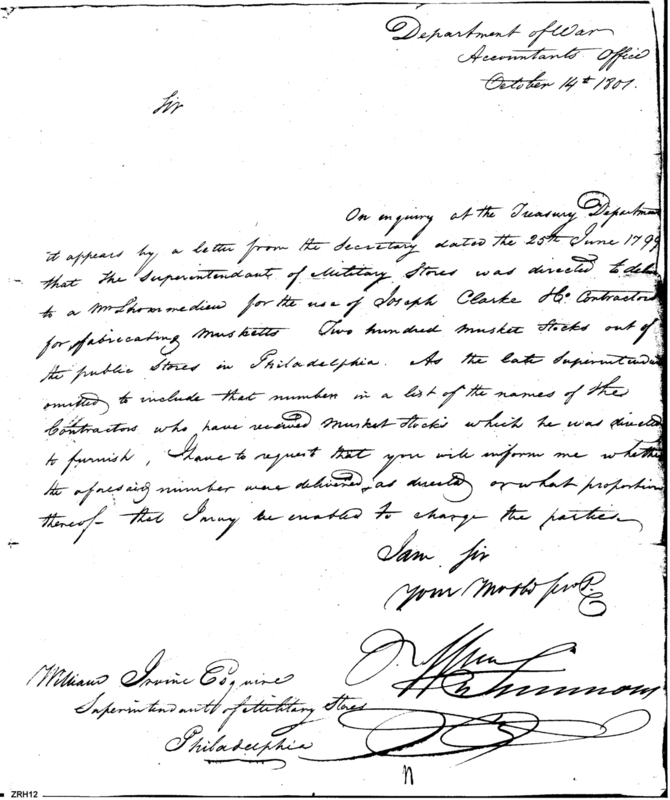 Department of War
Accountants Office
October 14th 1801.
Sir
On enquiry at the Treasury Department
it appears by a letter from the Secretary dated the 25th June 1799
that the Superintendant of Military Stores was directed to
to a Mr Lhommedieu for the use of Joseph Clarke &c. Contractors
for fabricating Musketts Two hundred Musket Stocks out of
the public Stores in Philadelphia. As the late Superintendant
omitted to include that number in a list of the names of the
Contractors who have received Musket Stocks which he was directed
to furnish, I have to request that you will inform me whether
the aforesaid number were delivered as directed or what proportion
thereof that I may be enabled to charge the parties
I am Sir
Your
Wm Simmons
William Irvine Esquire
Superintendant of Military Stores
Philadelphia
n
ZRH12